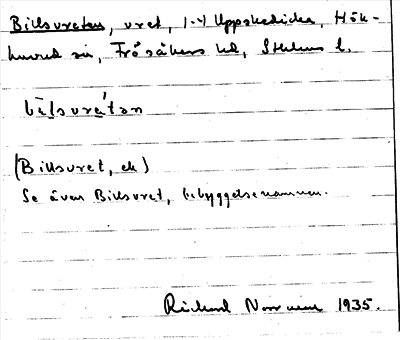 Billsvreten, vret, 1-4 Uppskedika, Hök-
huvud sn, Frösåkers hd, Sthlms l.
bìlsvre´tan
(Billsvret, ek)
Se även Billsvret, bebyggelsenamnen.
Richard Norrman 1935.